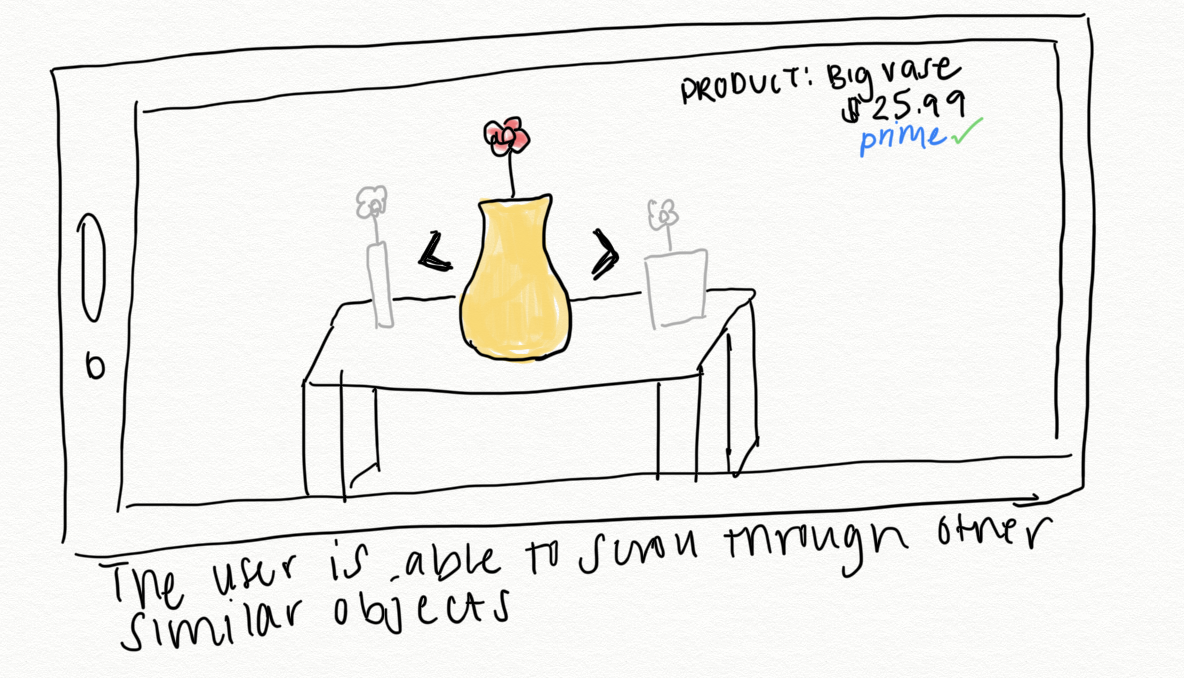 PRODUCT: Big vase
$25.99
prime✓
The user is able to scroll through other
similar objects